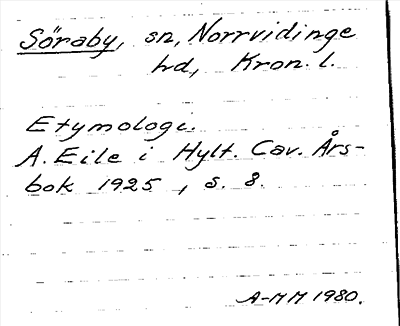 Söraby, sn, Norrvidinge
hd, Kron. l.
Etymologi.
A. Eile i Hylt. Cav. Års-
bok 1925, s. 8.
A-MM 1980.